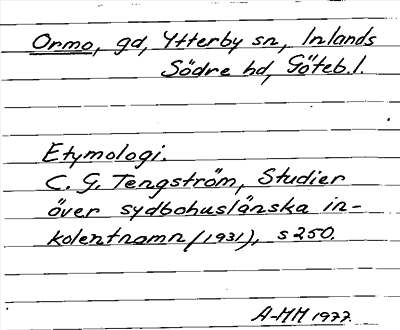 Ormo, gd, Ytterby sn, Inlands
Södre hd, Göteb. l.
Etymologi.
C. G. Tengström, Studier
över sydbohuslänska in-
kolentnamn (1931), s 250.
A-MH 1977.